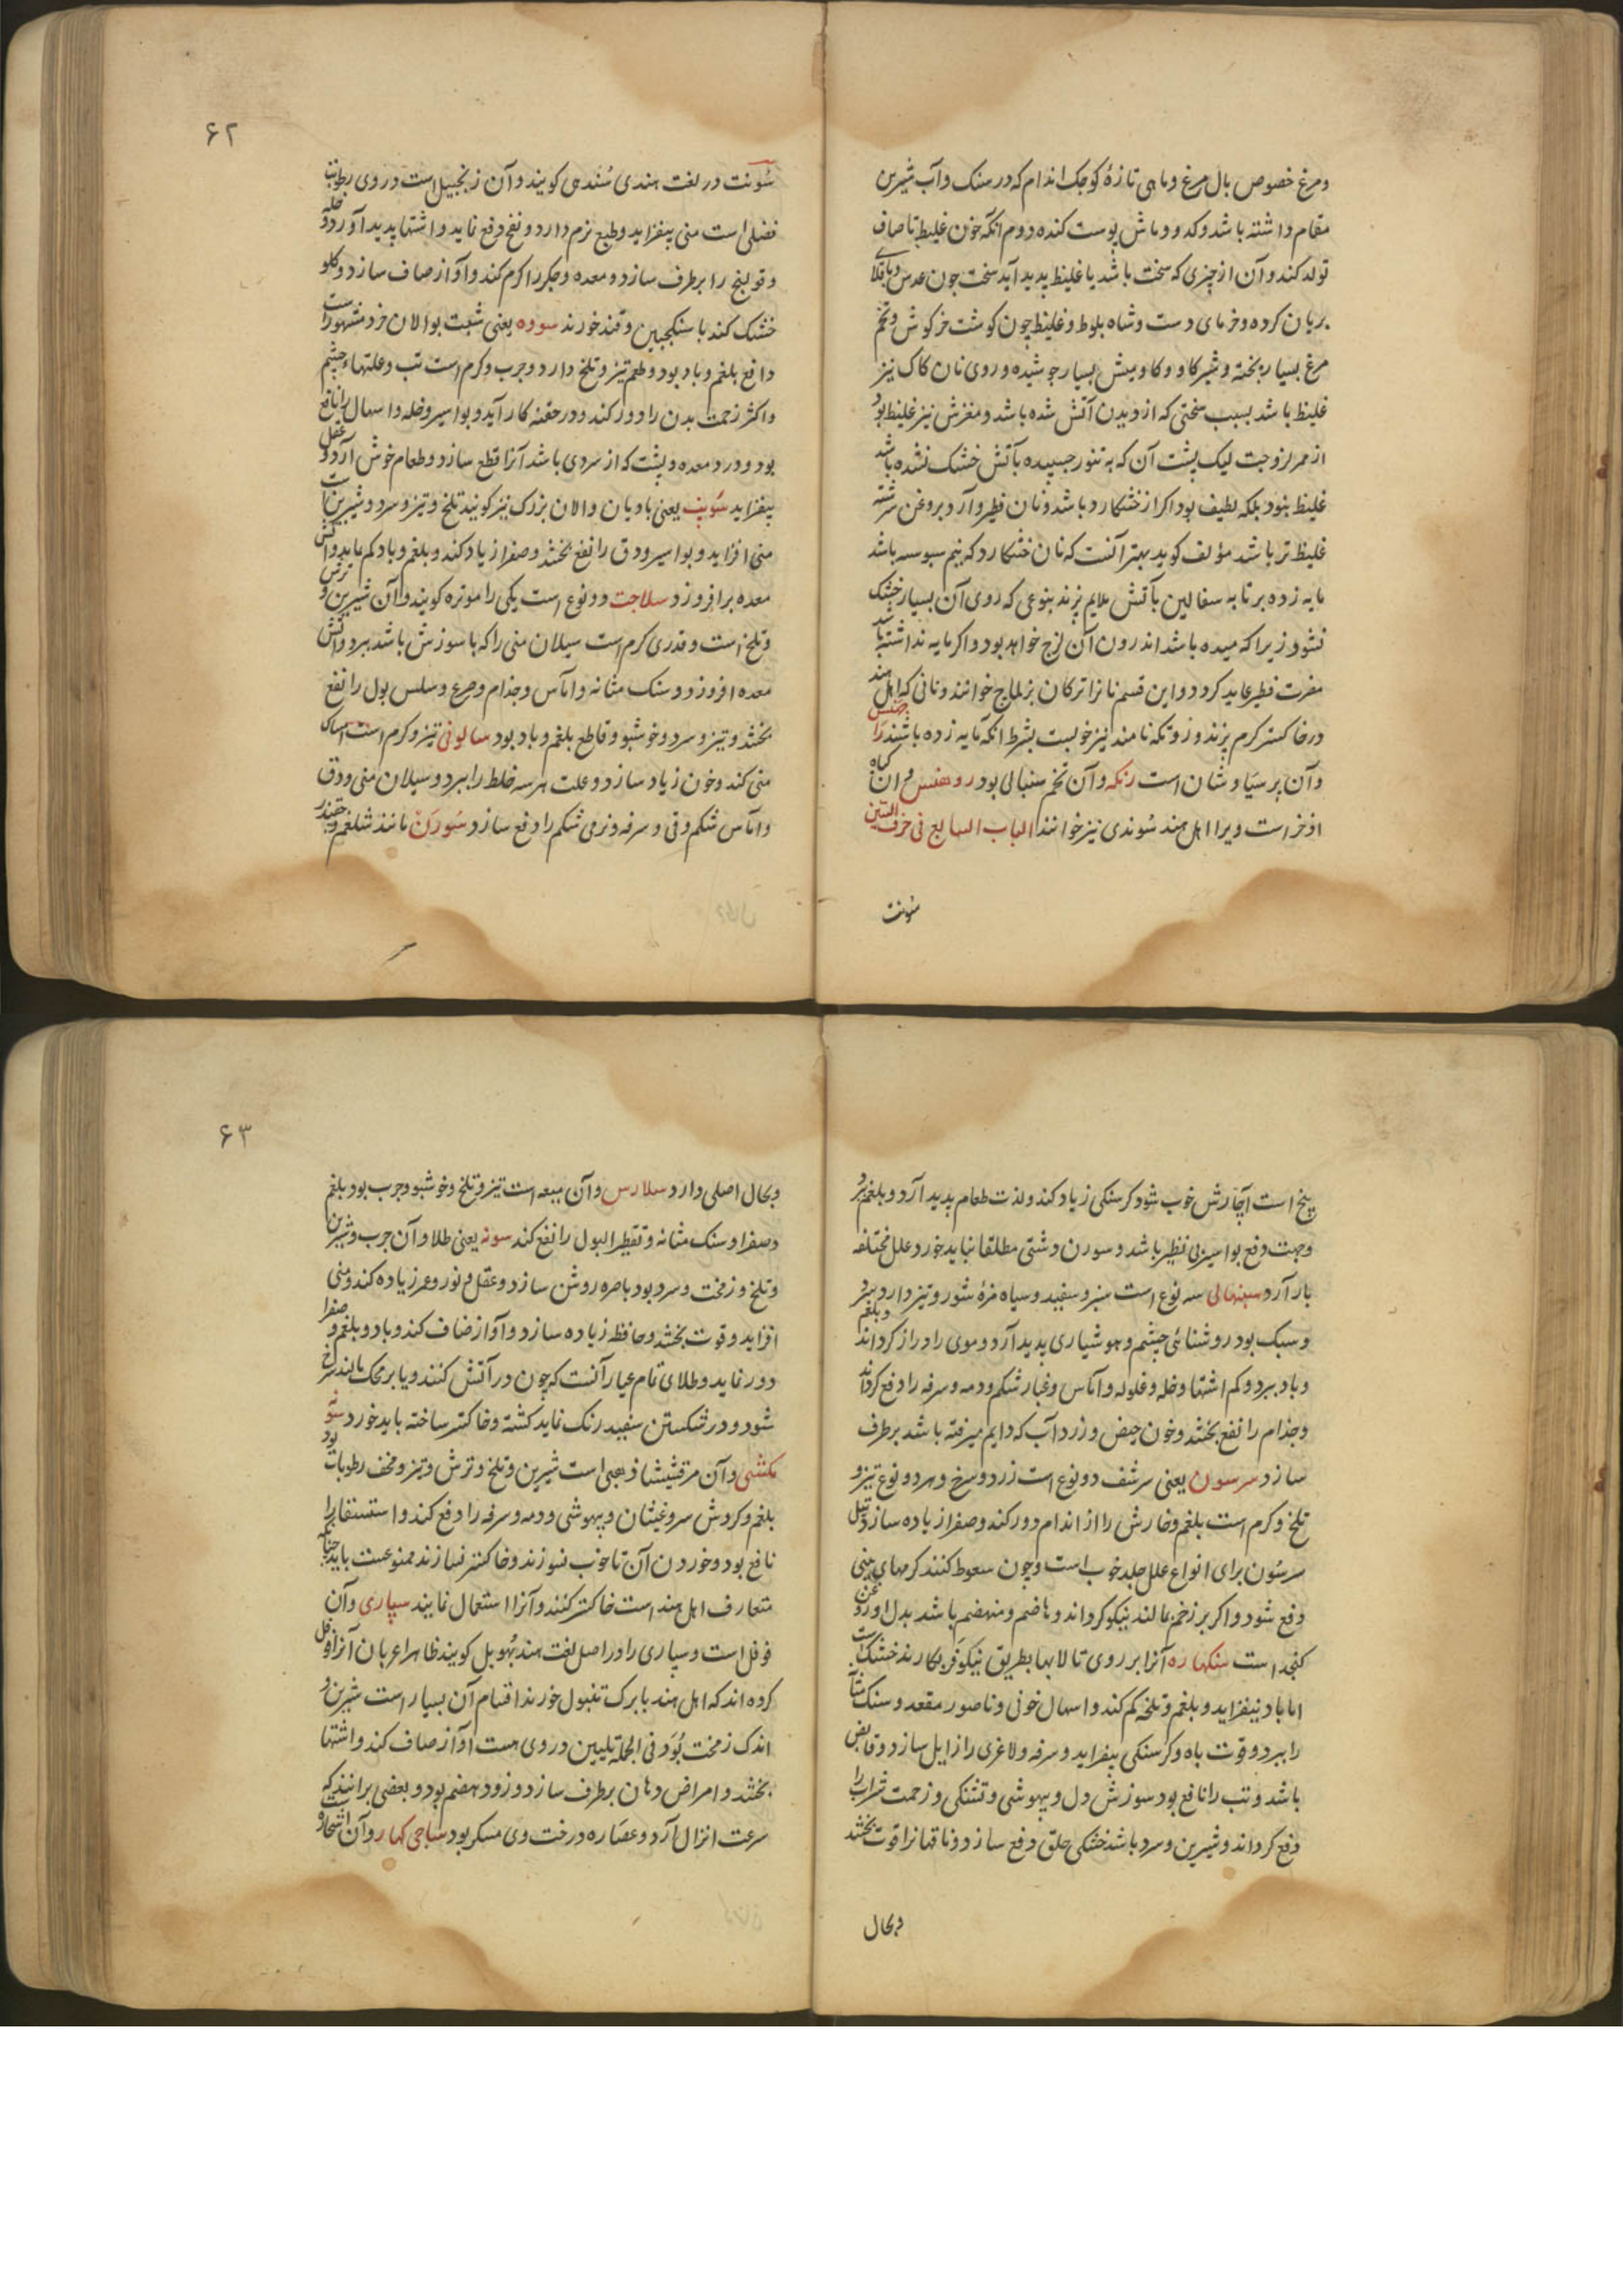 ومرغ خصوص بال مرغ وماهی تازهٔ کوچک اندام که در سنک وآب شیرین
مقام داشته باشد وکدو وماش پوست کنده دوم آنکه خون غلیظ ناصاف
تولد کند وآن از چیزی که سخت باشد یا غلیظ پدید آید سخت چون عدس وباقلای
بریان کرده وخرمای دست وشاه بلوط وغلیظ چون کوشت خرکوش وتخم
مرغ بسیار پخته وشیر کاو وکاومیش بسیار جوشیده وروی نان کاک نیز
غلیظ باشد بسبب سختی که از دیدن آتش شده باشد ومغزش نیز غلیظ بود
از ممر لزوجت لیک پشت آن که به تنور چسپیده بآتش خشک نشده باشد
غلیظ بنود بلکه لطیف بود اکر از خشکار باشد ونان فطیر وآرد بروغن سرشته
غلیظ تر باشد مؤلف کوید بهتر آنست که نان خشکار د که نیم سبوسه باشد
مایه زده بر تابه سفالین بآتش ملایم پزند بنوعی که روی آن بسیار خشک
نشود زیرا که میده باشد اندرون آن لزج خواهد بود واکر مایه نداشته باشد
مضرت فطیر عاید کردد واین قسم نانرا ترکان بزلماج خوانند ونانی که اهل هند
در خاکستر کرم پزند ورونکه نامند نیز خوبست بشرط آنکه مایه زده باشند را جنس
وآن پرسیاوشان است رنکه وآن تخم سنبالی بود روهنس وآن کیاه
اذخر است ویرا اهل هند سوندی نیز خوانند الباب السابع فی حرف السین
سونت
۶۲
سونت در لغت هندی سُندهی کویند وآن زنجبیل است در وی رطوبتها
فضلی است منی بیفزاید وطبع نرم دارد ونفخ دفع نماید واشتها پدید آورد و خله
وقولنج را برطرف سازد ومعده وجکر را کرم کند وآواز صاف سازد وکلو
خشک کند با سکنجبین وقند خورند سووه یعنی شبت بوالان خرد مشهور است
دافع بلغم وباد بود وطعم تیز وتلخ دارد وچرب وکرم است تب وعلتهاء چشم
واکثر زحمت بدن را دور کند ودر حقنه کار آید وبواسیر وخله واسهال را نافع
بود ودرد معده وپشت که از سردی باشد آنرا قطع سازد وطعام خوش آرد و عقل
بیفزاید سونپ یعنی بادیان والان بزرک نیز کویند تلخ وتیز وسرد وشیرین است
منی افزاید وبواسیر ودق را نفع بخشد وصفرا زیاد کند وبلغم وباد کم نماید و آتش
معده برافروزد سلاجت دو نوع است یکی را موتره کویند وآن شیرین و ترش
وتلخ است وقدری کرم است سیلان منی را که با سوزش باشد ببرد وآتش
معده افروزد وسنک مثانه وآماس وجذام وصرع وسلس بول را نفع
بخشد وتیز وسرد وخوشبو وقاطع بلغم وباد بود سالونی تیز وکرم است امساک
منی کند وخون زیاد سازد وعلت هر سه خلط را ببرد وسیلان منی ودق
وآماس شکم وقی وسرفه ونرمی شکم را دفع سازد سُورَن مانند شلغم وچقندر
بیخ است آچارش خوب شود کرسنکی زیاد کند ولذت طعام پدید آرد وبلغم برد
وجهت دفع بواسیر بی نظیر باشد وسورن دشتی مطلقا نباید خورد علل مختلفه
بار آرد سبنهالی سه نوع است سبز وسفید وسیاه مزهٔ شور وتیز دارد وسرد
وسبک بود روشنائی چشم وهوشیاری پدید آرد وموی را دراز کرداند وبلغم
وباد ببرد وکم اشتها وخله وغلوله وآماس وغبار شکم ودمه وسرفه را دفع کرداند
وجذام را نفع بخشد وخون حیض وزرداب که دایم میرفته باشد برطرف
سازد سرسون یعنی سرشف دو نوع است زرد وسرخ وهر دو نوع تیز و
تلخ وکرم است بلغم وخارش را از اندام دور کند وصفرا زیاده سازد وتیل
سرسُون برای انواع علل جلد خوب است وچون سعوط کنند کرمهای بینی
دفع شود واکر بر زخم مالند نیکو کرداند وهاضم ومنهضم باشد بدل او روغن
کنجد است سنکهاره آنرا بر روی تالابها بطریق نیکوفر بکارند خشک است
اما باد بیفزاید وبلغم وتلخه کم کند واسهال خونی وناصور مقعد وسنک مثانه
را ببرد وقوت باه وکرسنکی بیفزاید وسرفه ولاغری را زایل سازد وقابض
باشد وتب را نافع بود سوزش دل وبیهوشی وتشنکی وزحمت شراب را
دفع کرداند وشیرین وسرد باشد خشکی حلق دفع سازد وناقهانرا قوت بخشد
وبحال
۶۳
وبحال اصلی دارد سلارس وآن میعه است تیز وتلخ وخوشبو وچرب بود بلغم
وصفرا وسنک مثانه وتقطیر البول را نفع کند سونه یعنی طلا وآن چرب وشیرین
وتلخ وزمخت وسرد بود باصره روشن سازد وعقل ونور وعمر زیاده کند ومنی
افزاید وقوت بخشد وحافظه زیاده سازد وآواز صاف کند وباد وبلغم و صفرا
دور نماید وطلای تمام عیار آنست که چون در آتش کنند ویا بر محک مالند سرخ
شود ودر شکستن سفید رنک نماید کشته وخاکستر ساخته باید خورد سو
مکشی وآن مرقشیشا ذهبی است شیرین وتلخ وترش وتیز ومخفف رطوبات بود
بلغم وکردش سر وغثیان وبیهوشی ودمه وسرفه را دفع کند واستسقا را
نافع بود وخوردن آن تا خوب نسوزند وخاکستر نسازند ممنوعست باید چنانکه
متعارف اهل هند است خاکستر کنند وآنرا استعمال نمایند سپاری وآن
فوفل است وسپاری را در اصل لغت هند بُهوبل کویند ظاهرا عربان آنرا فوفل
کرده اند که اهل هند با برک تنبول خورند اقسام آن بسیار است شیرین و
اندک زمخت بُوَد فی الجمله تلیین در وی هست آواز صاف کند واشتها
بخشد وامراض دهان برطرف سازد وزود هضم بود وبعضی برانند که
سرعت انزال آرد وعصاره درخت وی مسکر بود ساجی کهار وآن اشخار است و